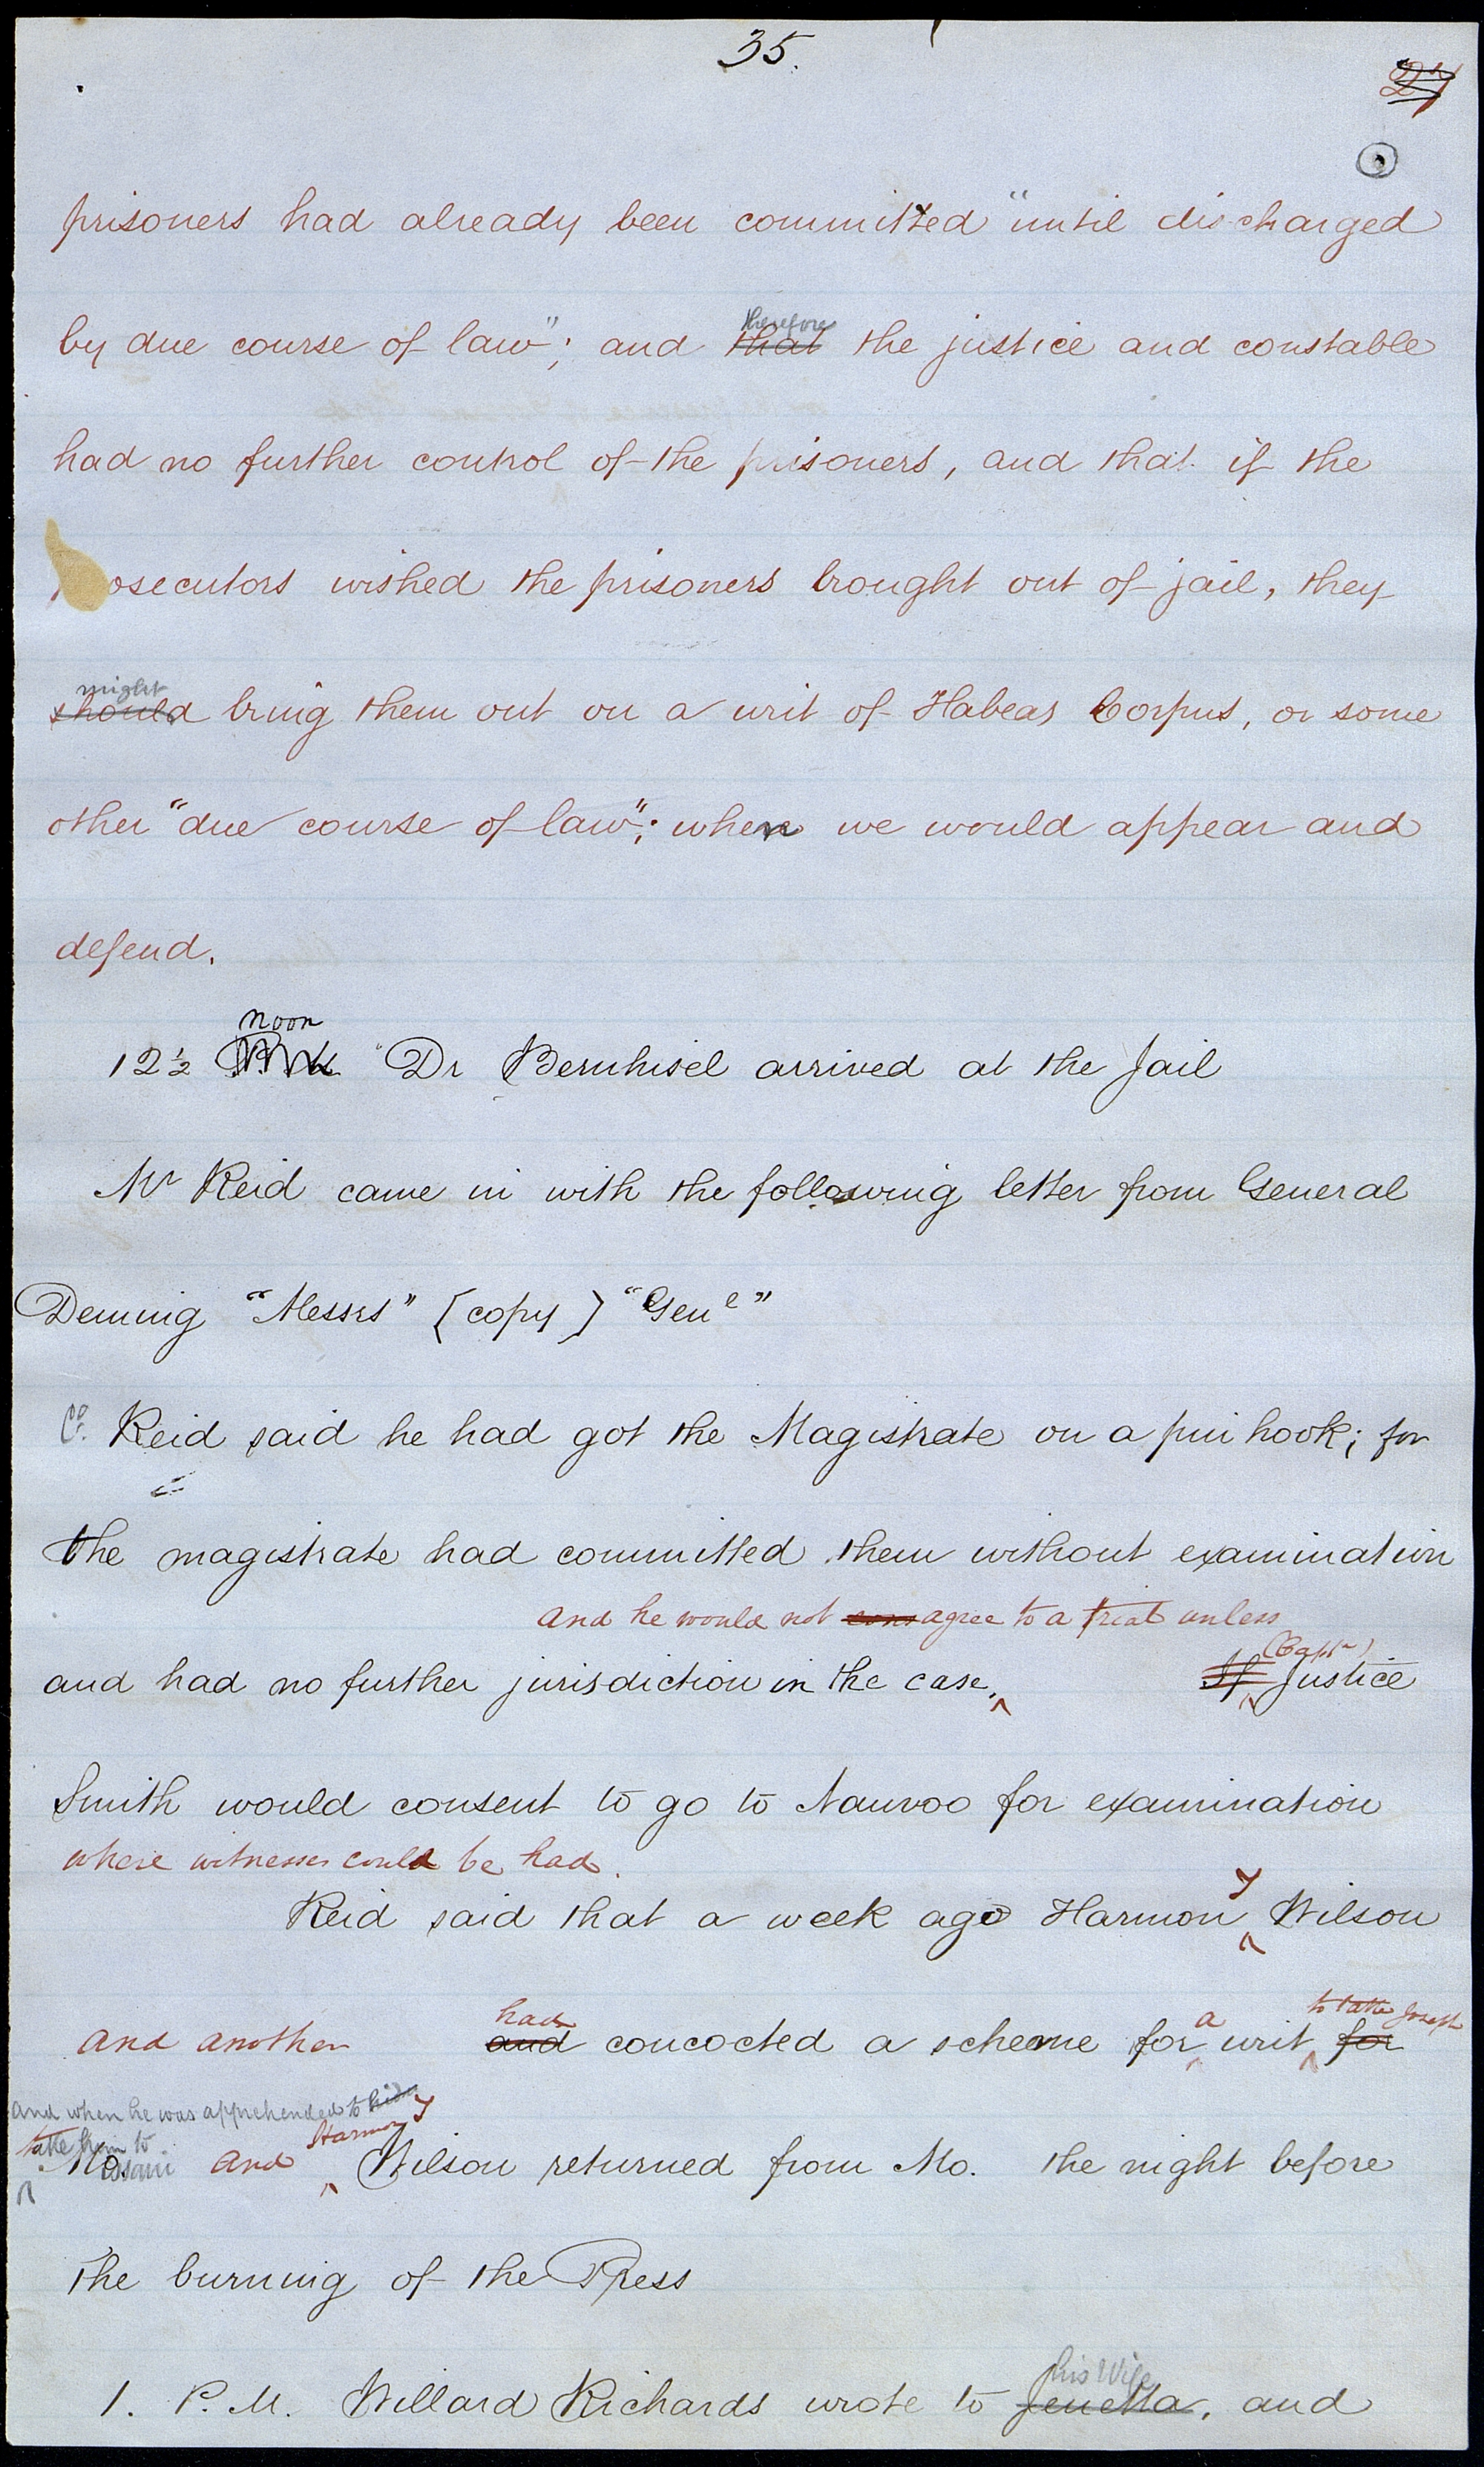 35.
27
prisoners had already been committed "until discharged
therefore
by due course of law"; and that the justice and constable
had no further control of the prisoners, and that if the
osecutors wished the prisoners brought out of jail, they
might
should bring them out on a writ of Habeas Corpus, or some
other "due course of law"; when we would appear and
defend.
noon
12½ Dr Bernhisel arrived at the Jail
Mr Reid came in with the following letter from General
Deming "Messrs" [copy] "Genl"
Co. Reid said he had got the Magistrate on a pin hook; for
the magistrate had committed them without examination
and he would not cons agree to a trial unless
(Captn)
and had no further jurisdiction in the case, If Justice
Smith would consent to go to Nauvoo for examination
where witnesses could be had.
y
Reid said that a week ago Harmon Wilson
had a to take Joseph
and another and concocted a scheme for writ for
and when he was apprehended to
take him to Harmon y
Mo. and Wilson returned from Mo. the night before
the burning of the Press
his Wife
1. P.M. Willard Richards wrote to Jenetta, and